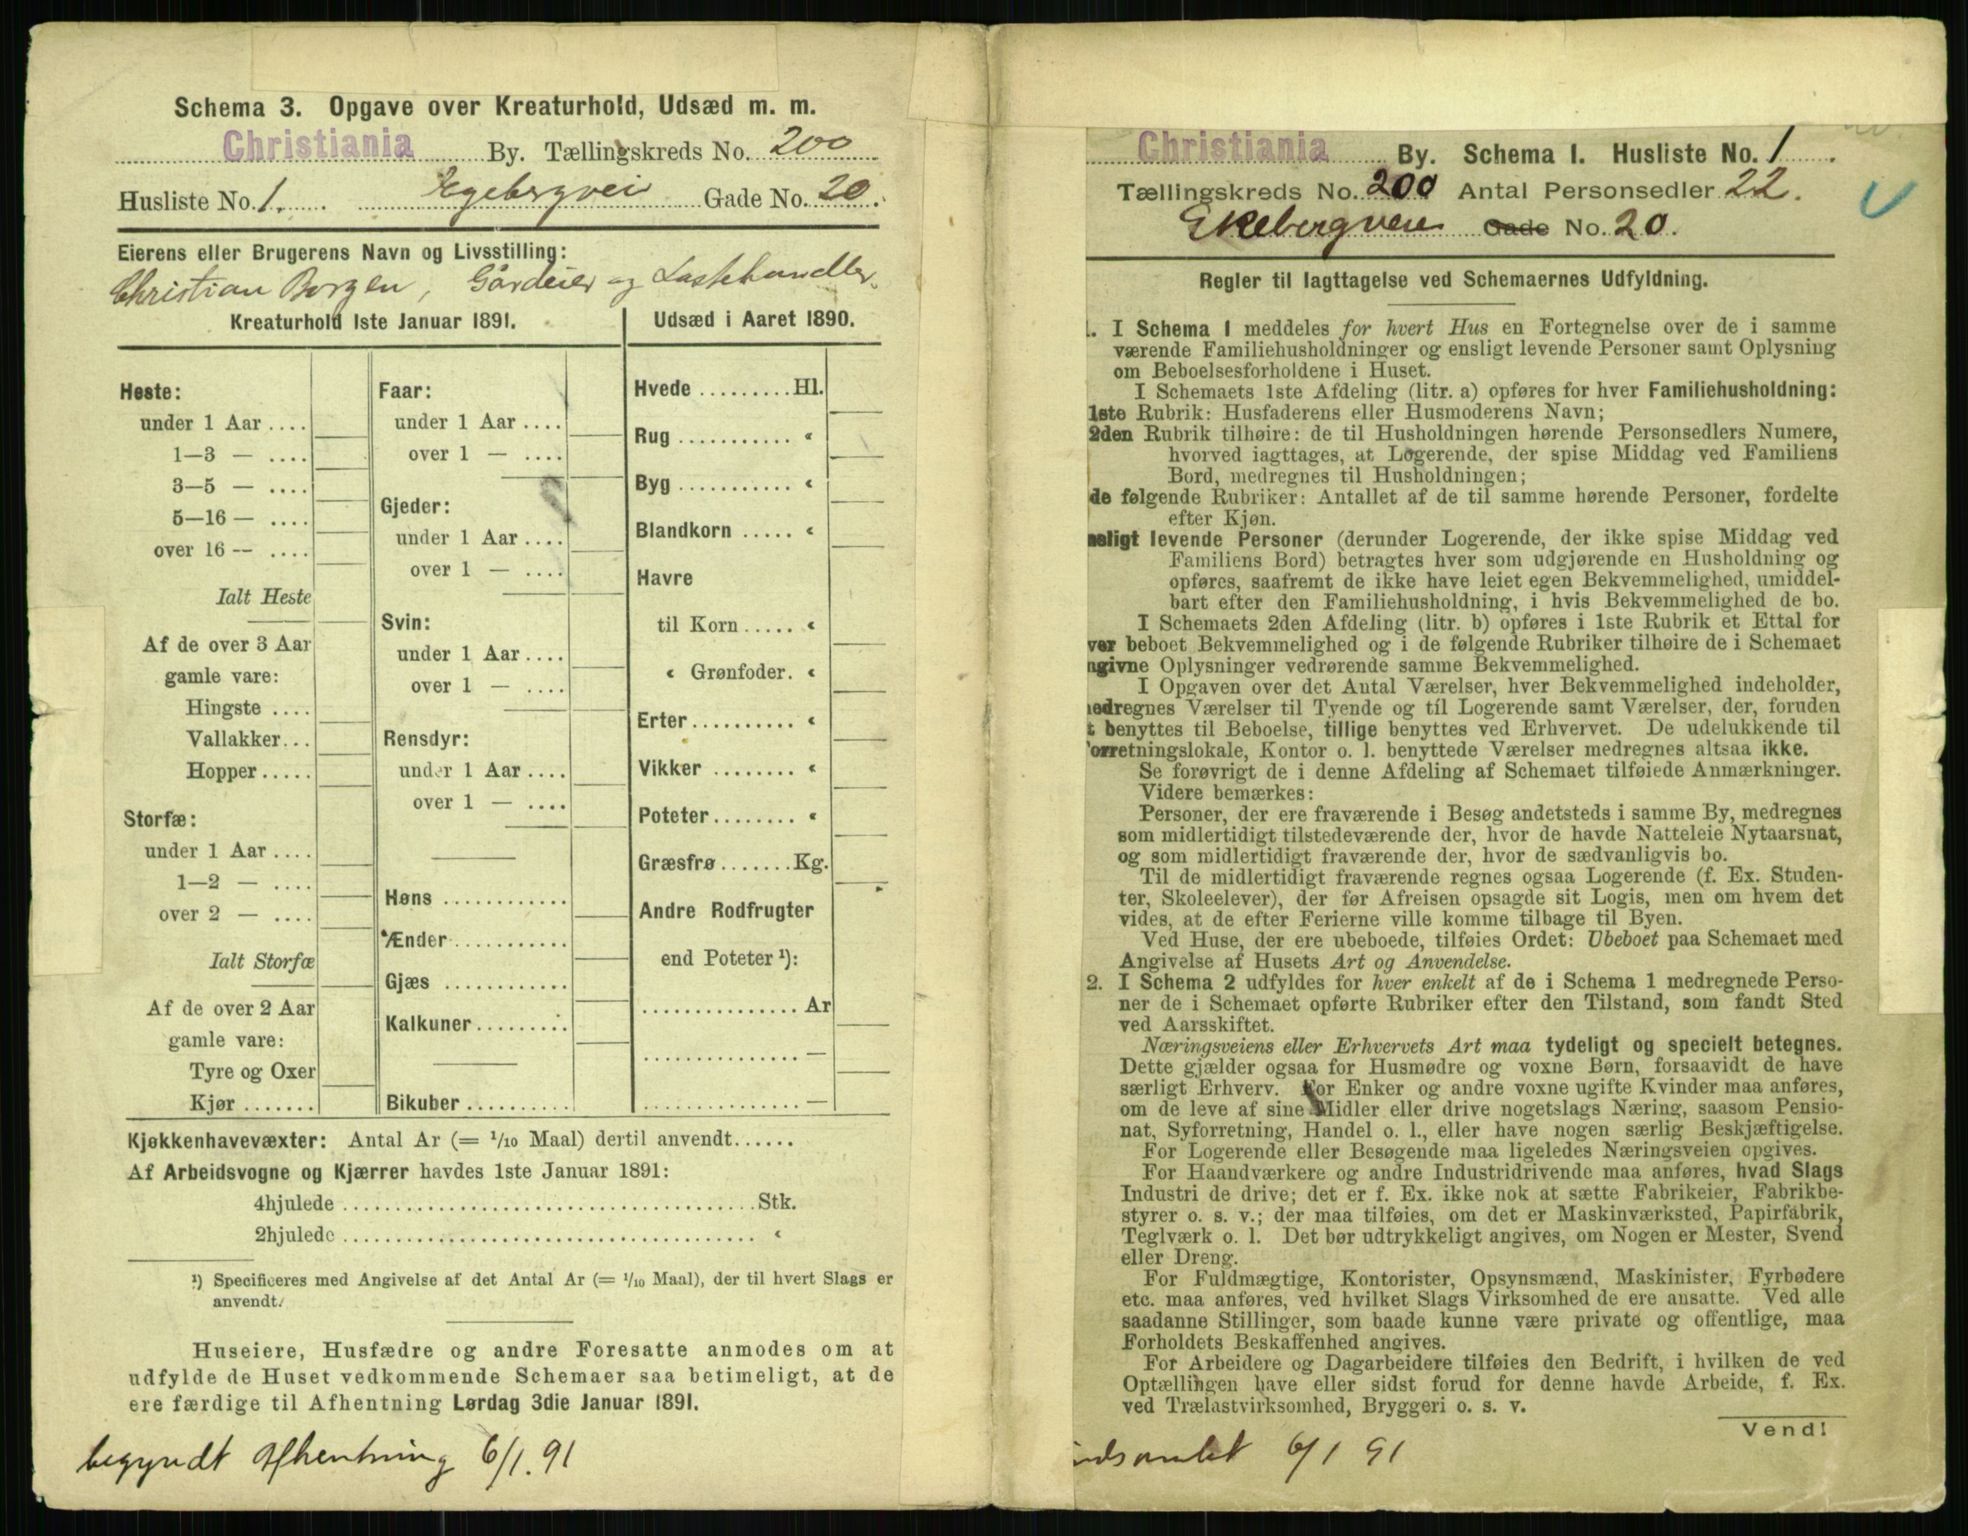 Schema 3. Opgave over Kreaturhold, Udsæd m. m.
Christiania By. Tællingskreds No. 200
Husliste No. 1. Egebergvei Gade No. 20.
Eierens eller Brugerens Navn og Livsstilling:
Christian Borgen, Gårdeier og Lastehandler.
Kreaturhold 1ste Januar 1891.
Heste:
under 1 Aar ....
1—3 — ....
3—5 — ....
5—16 — ....
over 16 — ....
Ialt Heste
Af de over 3 Aar
gamle vare:
Hingste ....
Vallakker...
Hopper .....
Storfæ:
under 1 Aar ....
1—2 — ....
over 2 — ....
Ialt Storfæ
Af de over 2 Aar
gamle vare:
Tyre og Oxer
Kjør .......
Faar:
under 1 Aar ....
over 1 — ....
Gjeder:
under 1 Aar ....
over 1 — ....
Svin:
under 1 Aar ....
over 1 — ....
Rensdyr:
under 1 Aar ....
over 1 — ....
Høns ............
Ænder ...........
Gjæs ............
Kalkuner.........
Bikuber ..........
Udsæd i Aaret 1890.
Hvede ......... Hl.
Rug ........... «
Byg ........... «
Blandkorn ..... «
Havre
til Korn ..... «
« Grønfoder. «
Erter ......... «
Vikker ........ «
Poteter ........ «
Græsfrø ....... Kg.
Andre Rodfrugter
end Poteter ¹):
............... Ar
............... —
............... —
Kjøkkenhavevæxter: Antal Ar (= 1/10 Maal) dertil anvendt......
Af Arbeidsvogne og Kjærrer havdes 1ste Januar 1891:
4hjulede ...................................... Stk.
2hjulede ...................................... «
¹) Specificeres med Angivelse af det Antal Ar (= 1/10 Maal), der til hvert Slags er
anvendt.
Huseiere, Husfædre og andre Foresatte anmodes om at
udfylde de Huset vedkommende Schemaer saa betimeligt, at de
ere færdige til Afhentning Lørdag 3die Januar 1891.
begyndt afhentning 6/1. 91
Christiania By. Schema 1. Husliste No. 1
Tællingskreds No. 200 Antal Personsedler 22.
Ekebergveien Gade No. 20.
Regler til Iagttagelse ved Schemaernes Udfyldning.
1. I Schema 1 meddeles for hvert Hus en Fortegnelse over de i samme
værende Familiehusholdninger og ensligt levende Personer samt Oplysning
om Beboelsesforholdene i Huset.
I Schemaets 1ste Afdeling (litr. a) opføres for hver Familiehusholdning:
1ste Rubrik: Husfaderens eller Husmoderens Navn;
2den Rubrik tilhøire: de til Husholdningen hørende Personsedlers Numere,
hvorved iagttages, at Logerende, der spise Middag ved Familiens
Bord, medregnes til Husholdningen;
de følgende Rubriker: Antallet af de til samme hørende Personer, fordelte
efter Kjøn.
nsligt levende Personer (derunder Logerende, der ikke spise Middag ved
Familiens Bord) betragtes hver som udgjørende en Husholdning og
opføres, saafremt de ikke have leiet egen Bekvemmelighed, umiddel-
bart efter den Familiehusholdning, i hvis Bekvemmelighed de bo.
I Schemaets 2den Afdeling (litr. b) opføres i 1ste Rubrik et Ettal for
ver beboet Bekvemmelighed og i de følgende Rubriker tilhøire de i Schemaet
ngivne Oplysninger vedrørende samme Bekvemmelighed.
I Opgaven over det Antal Værelser, hver Bekvemmelighed indeholder,
nedregnes Værelser til Tyende og til Logerende samt Værelser, der, foruden
t benyttes til Beboelse, tillige benyttes ved Erhvervet. De udelukkende til
orretningslokale, Kontor o. l. benyttede Værelser medregnes altsaa ikke.
Se forøvrigt de i denne Afdeling af Schemaet tilføiede Anmærkninger.
Videre bemærkes:
Personer, der ere fraværende i Besøg andetsteds i samme By, medregnes
som midlertidigt tilstedeværende der, hvor de havde Natteleie Nytaarsnat,
og som midlertidigt fraværende der, hvor de sædvanligvis bo.
Til de midlertidigt fraværende regnes ogsaa Logerende (f. Ex. Studen-
ter, Skoleelever), der før Afreisen opsagde sit Logis, men om hvem det
vides, at de efter Ferierne ville komme tilbage til Byen.
Ved Huse, der ere ubeboede, tilføies Ordet: Ubeboet paa Schemaet med
Angivelse af Husets Art og Anvendelse.
2. I Schema 2 udfyldes for hver enkelt af de i Schema 1 medregnede Perso-
ner de i Schemaet opførte Rubriker efter den Tilstand, som fandt Sted
ved Aarsskiftet.
Næringsveiens eller Erhvervets Art maa tydeligt og specielt betegnes.
Dette gjælder ogsaa for Husmødre og voxne Børn, forsaavidt de have
særligt Erhverv. For Enker og andre voxne ugifte Kvinder maa anføres,
om de leve af sine Midler eller drive nogetslags Næring, saasom Pensio-
nat, Syforretning, Handel o. l., eller have nogen særlig Beskjæftigelse.
For Logerende eller Besøgende maa ligeledes Næringsveien opgives.
For Haandværkere og andre Industridrivende maa anføres, hvad Slags
Industri de drive; det er f. Ex. ikke nok at sætte Fabrikeier, Fabrikbe-
styrer o. s. v.; der maa tilføies, om det er Maskinværksted, Papirfabrik,
Teglværk o. l. Det bør udtrykkeligt angives, om Nogen er Mester, Svend
eller Dreng.
For Fuldmægtige, Kontorister, Opsynsmænd, Maskinister, Fyrbødere
etc. maa anføres, ved hvilket Slags Virksomhed de ere ansatte. Ved alle
saadanne Stillinger, som baade kunne være private og offentlige, maa
Forholdets Beskaffenhed angives.
For Arbeidere og Dagarbeidere tilføies den Bedrift, i hvilken de ved
Optællingen have eller sidst forud for denne havde Arbeide, f. Ex.
ved Trælastvirksomhed, Bryggeri o. s. v.
Vend!
indsamlet 6/1 91